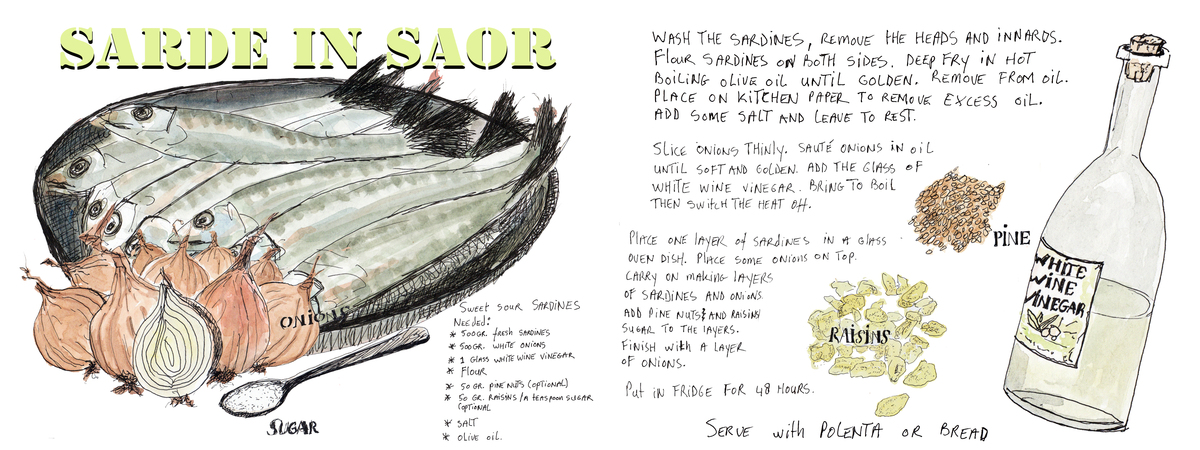 SARDE IN SAOR
ONIONS
SUGAR
SWEET SOUR SARDINES
NEEDED:
* 500GR. fresh SARDINES
* 500GR. WHITE ONIONS
* 1 GLASS WHITE WINE VINEGAR
* FLOUR
* 50 GR. PINE NUTS (OPTIONAL)
* 50 GR. RAISINS /A TEASPOON SUGAR
(OPTIONAL
* SALT
* OLIVE OIL.
WASH THE SARDINES, REMOVE THE HEADS AND INNARDS.
FLOUR SARDINES ON BOTH SIDES. DEEP FRY IN HOT
BOILING OLIVE OIL UNTIL GOLDEN. REMOVE FROM OIL.
PLACE ON KITCHEN PAPER TO REMOVE EXCESS OIL.
ADD SOME SALT AND LEAVE TO REST.
SLICE ONIONS THINLY. SAUTÉ ONIONS IN OIL
UNTIL SOFT AND GOLDEN. ADD THE GLASS OF
WHITE WINE VINEGAR. BRING TO BOIL
THEN SWITCH THE HEAT OFF.
PLACE ONE LAYER OF SARDINES IN A GLASS
OVEN DISH. PLACE SOME ONIONS ON TOP.
CARRY ON MAKING LAYERS
OF SARDINES AND ONIONS.
ADD PINE NUTS & AND RAISINS/
SUGAR TO THE LAYERS.
FINISH WITH A LAYER
OF ONIONS.
PUT IN FRIDGE FOR 48 HOURS.
SERVE with POLENTA OR BREAD
PINE
RAISINS
WHITE
WINE
VINEGAR